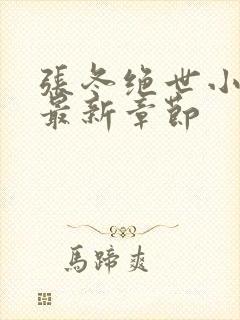 張冬绝世小
最新章節
馬蹄爽